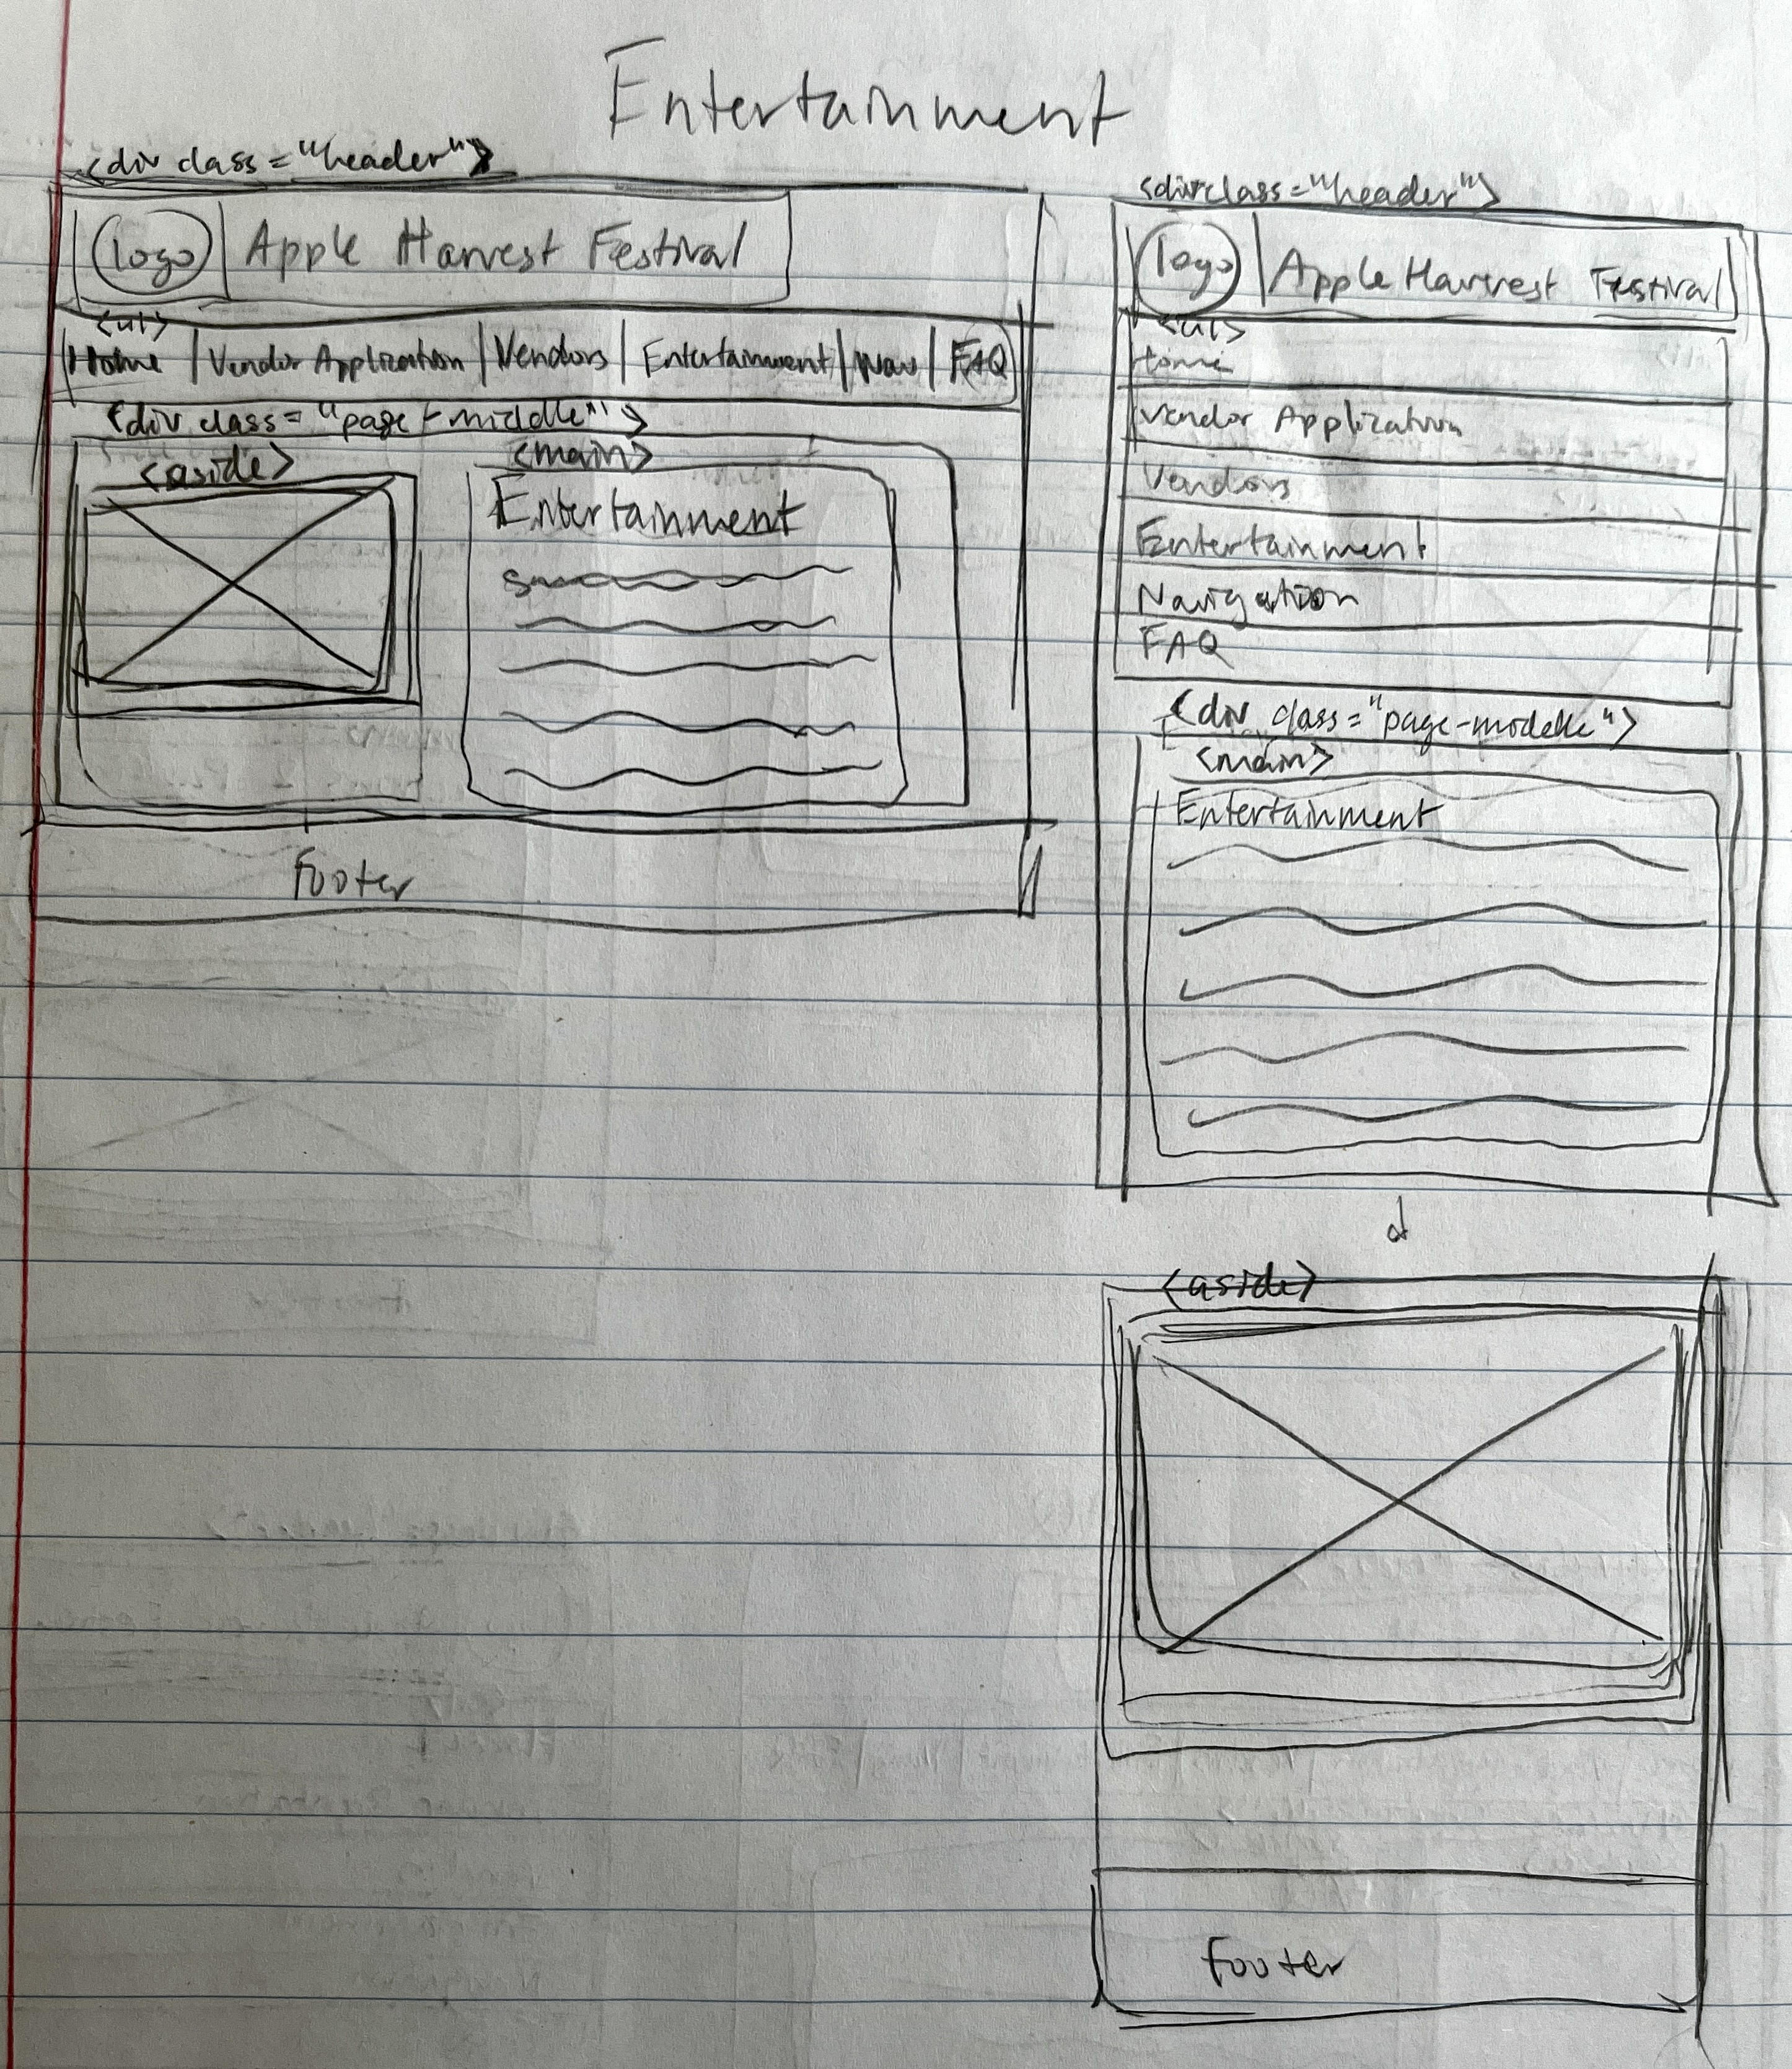 Entertainment
<div class="header">
logo Apple Harvest Festival
<ul>
Home Vendor Application Vendors Entertainment Nav FAQ
<div class="page-middle">
<aside>
<main>
Entertainment
Footer
<div class="header">
logo Apple Harvest Festival
<ul>
Home
Vendor Application
Vendors
Entertainment
Navigation
FAQ
<div class="page-middle">
<main>
Entertainment
<aside>
Footer